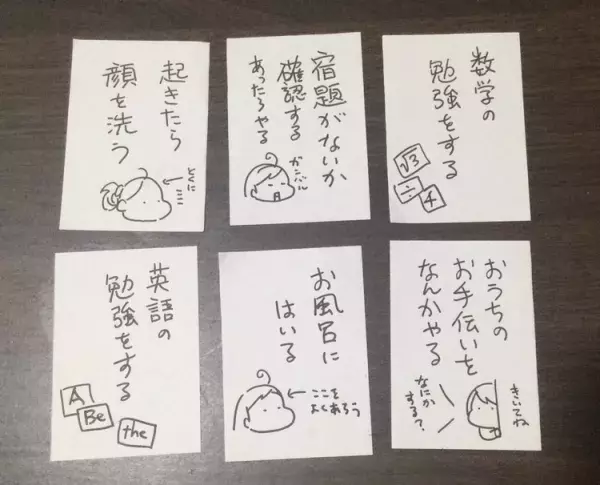 起きたら
顔を洗う
とくに
ココ
宿題がないか
確認する
あったらやる
ガンバル
数学の
勉強をする
√3
÷
4
英語の
勉強をする
A
Be
the
お風呂に
はいる
ココを
よくあらう
おうちの
お手伝いを
なんかやる
きいてね
なにか
する?